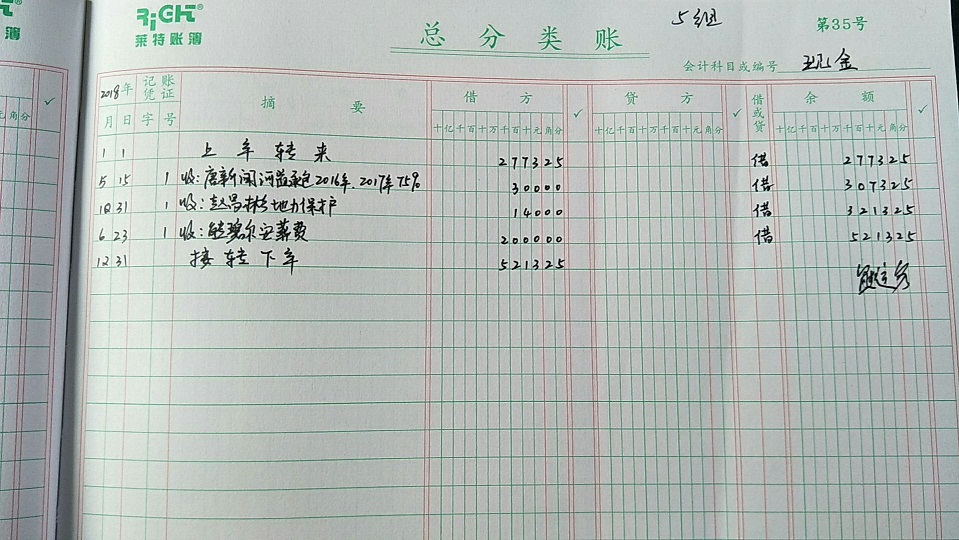 RiGHT®
莱特账簿
簿
5组
总分类账
第35号
会计科目或编号 现金
2018年 记账凭证 摘要 借方 ✓ 贷方 ✓ 借或贷 余额 ✓
月 日 字 号 十亿千百十万千百十元角分 十亿千百十万千百十元角分 十亿千百十万千百十元角分
1 1 上年转来 277325 借 277325
5 15 1 收: 承包2016年、2017年75% 30000 借 307325
10 31 1 收: 地力保护 14000 借 321325
6 23 1 收: 安葬费 200000 借 521325
12 31 接转下年 521325